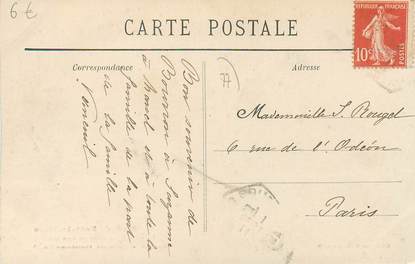 6 €
CARTE POSTALE
REPUBLIQUE FRANÇAISE
10c
POSTES
Correspondance
Adresse
77
Bon souvenir de
Bourron à Suzanne
à Marcel et à toute la
famille de la part
de la famille
Verneuil
Mademoiselle S. Rougel
6 rue de l'Odéon
Paris